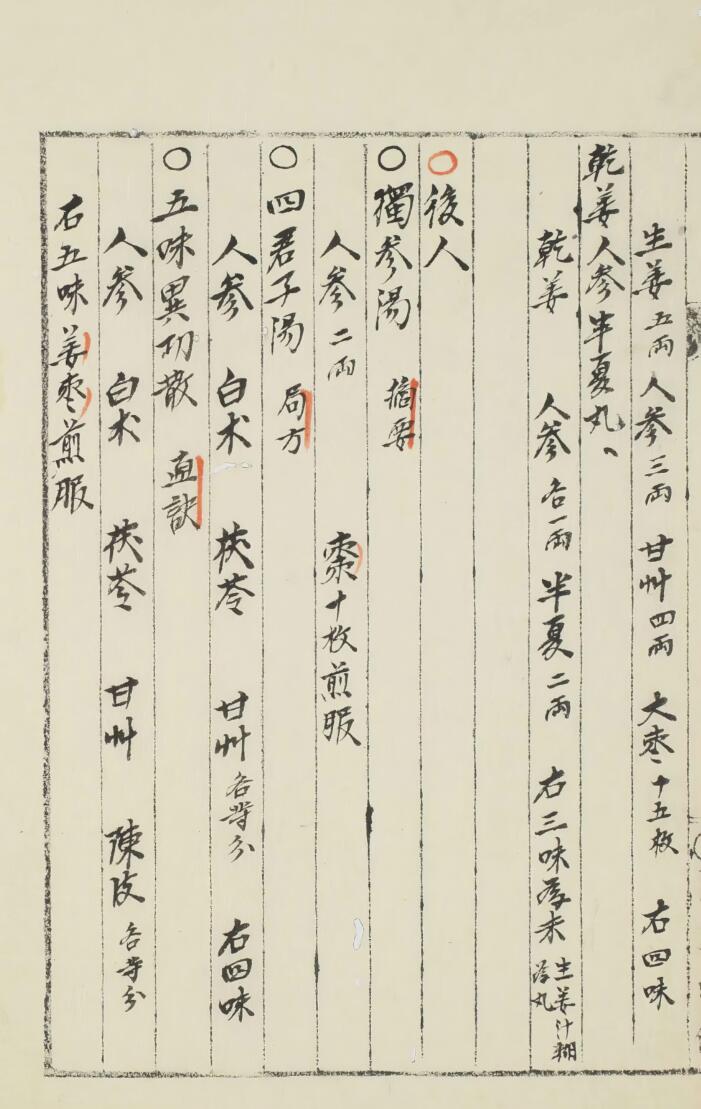 生姜五兩 人参三兩 甘艸四兩 大枣十五枚 右四味
乾姜人参半夏丸、
乾姜 人参各一兩 半夏二兩 右三味為末 生姜汁糊為丸
○後人
○獨参湯 摘要
人参二兩 棗十枚煎服
○四君子湯 局方
人参 白术 茯苓 甘艸各等分 右四味
○五味異功散 直訣
人参 白术 茯苓 甘艸 陳皮各等分
右五味姜枣煎服